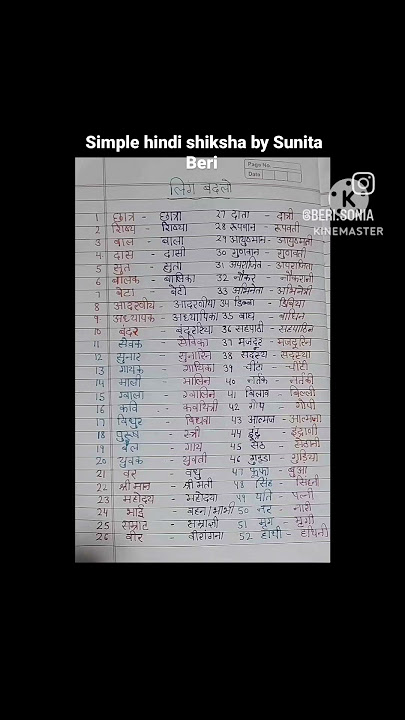 Simple hindi shiksha by Sunita
Beri
Page No.
Date
@BERI.SONIA
KINEMASTER
लिंग बदलो
1 छात्र - छात्रा 27 दाता - दात्री
2 शिष्य - शिष्या 28 रूपवान - रूपवती
3 बाल - बाला 29 आयुष्मान - आयुष्मती
4 दास - दासी 30 गुणवान - गुणवती
5 सुत - सुता 31 अपराजित - अपराजिता
6 बालक - बालिका 32 नौकर - नौकरानी
7 बेटा - बेटी 33 अभिनेता - अभिनेत्री
8 आदरणीय - आदरणीया 34 डिब्बा - डिबिया
9 अध्यापक - अध्यापिका 35 बाघ - बाघिन
10 बंदर - बंदरिया 36 सहपाठी - सहपाठिन
11 सेवक - सेविका 37 मजदूर - मजदूरिन
12 सुनार - सुनारिन 38 सदस्य - सदस्या
13 गायक - गायिका 39 चींटा - चींटी
14 माली - मालिन 40 नर्तक - नर्तकी
15 ग्वाला - ग्वालिन 41 बिलाव - बिल्ली
16 कवि - कवयित्री 42 गोप - गोपी
17 विधुर - विधवा 43 आत्मज - आत्मजा
18 पुरुष - स्त्री 44 इंद्र - इंद्राणी
19 बैल - गाय 45 सेठ - सेठानी
20 युवक - युवती 46 गुड्डा - गुड़िया
21 वर - वधु 47 फूफा - बुआ
22 श्रीमान - श्रीमती 48 सिंह - सिंहनी
23 महोदय - महोदया 49 पति - पत्नी
24 भाई - बहन/भाभी 50 नर - नारी
25 सम्राट - सम्राज्ञी 51 मृग - मृगी
26 वीर - वीरांगना 52 हाथी - हथिनी